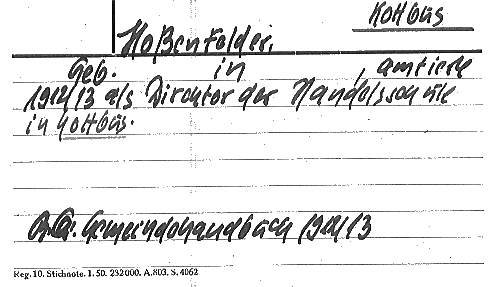 Kottbus
Hoßenfelder,
Geb. in , amtierte
1912/13 als Direktor der Handelsschule
in Kottbus.
Gemeindehandbuch 1912/13
Reg. 10. Stichnote. 1. 50. 232000. A.803. S. 4062